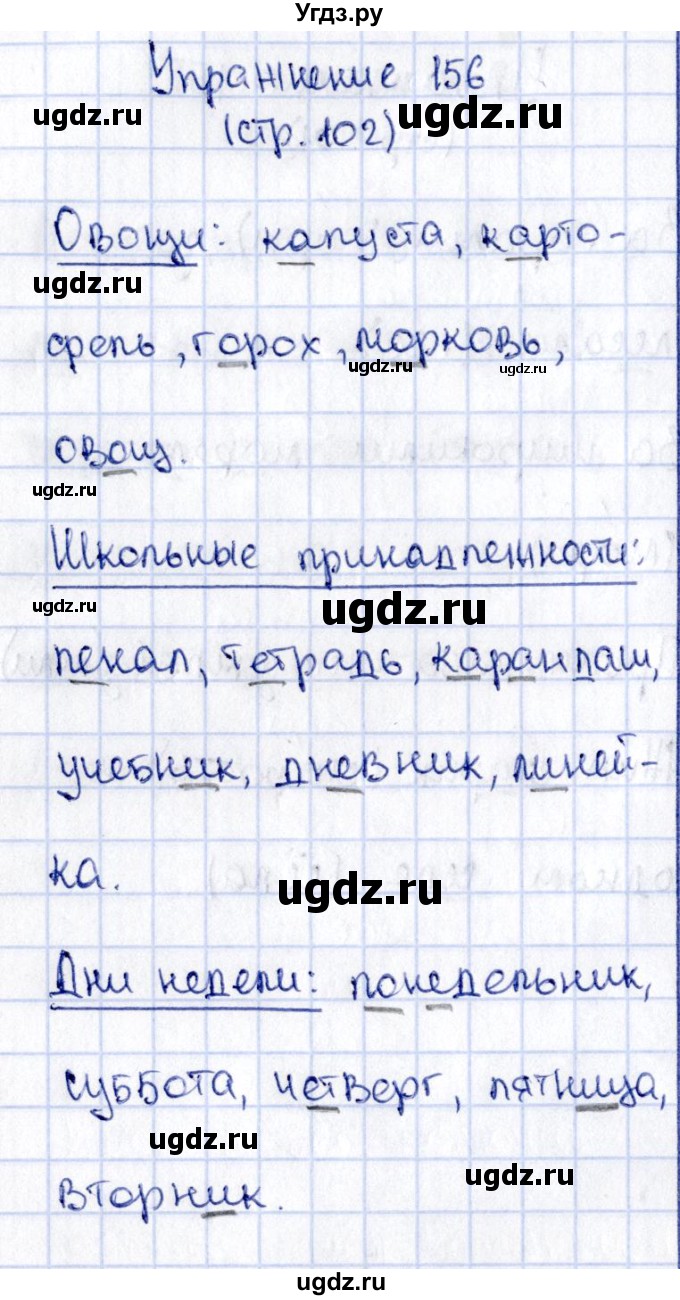 Угдз.ру
Упражнение 156
ugdz.ru
ugdz.ru
(стр. 102)
Овощи: капуста, карто-
ugdz.ru
фель, горох, морковь,
ugdz.ru
ugdz.ru
овощ.
ugdz.ru
Школьные принадлежности:
ugdz.ru
ugdz.ru
пенал, тетрадь, карандаш,
учебник, дневник, линей-
ка.
ugdz.ru
Дни недели: понедельник,
суббота, четверг, пятница,
ugdz.ru
ugdz.ru
вторник.
ugdz.ru